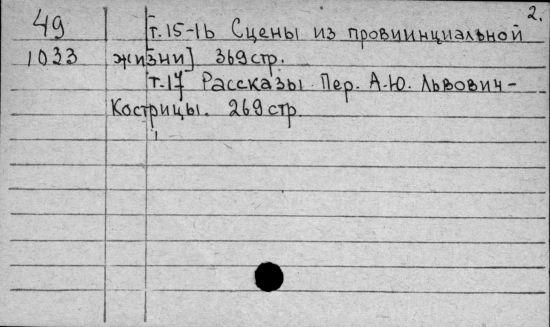 2.
49 т.15-16 Сцены из провиинциальной
1033 жизни] 369стр.
т.17 Рассказы. Пер. А.Ю. Львович-
Кострицы. 269стр.